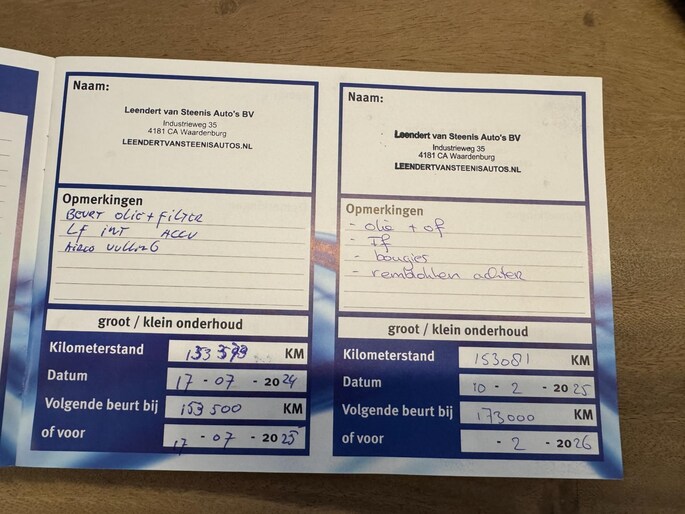 Naam:
Leendert van Steenis Auto's BV
Industrieweg 35
4181 CA Waardenburg
LEENDERTVANSTEENISAUTOS.NL
Opmerkingen
BEURT OLIE + FILTER
LF INT ACCU
AIRCO VULLING
groot / klein onderhoud
Kilometerstand KM
Datum 17 - 07 - 2024
Volgende beurt bij 153 500 KM
of voor 17 - 07 - 2025
Naam:
Leendert van Steenis Auto's BV
Industrieweg 35
4181 CA Waardenburg
LEENDERTVANSTEENISAUTOS.NL
Opmerkingen
- olie + of
- If
- bougies
- remblokken achter
groot / klein onderhoud
Kilometerstand 153081 KM
Datum 10 - 2 - 2025
Volgende beurt bij 173000 KM
of voor - 2 - 2026